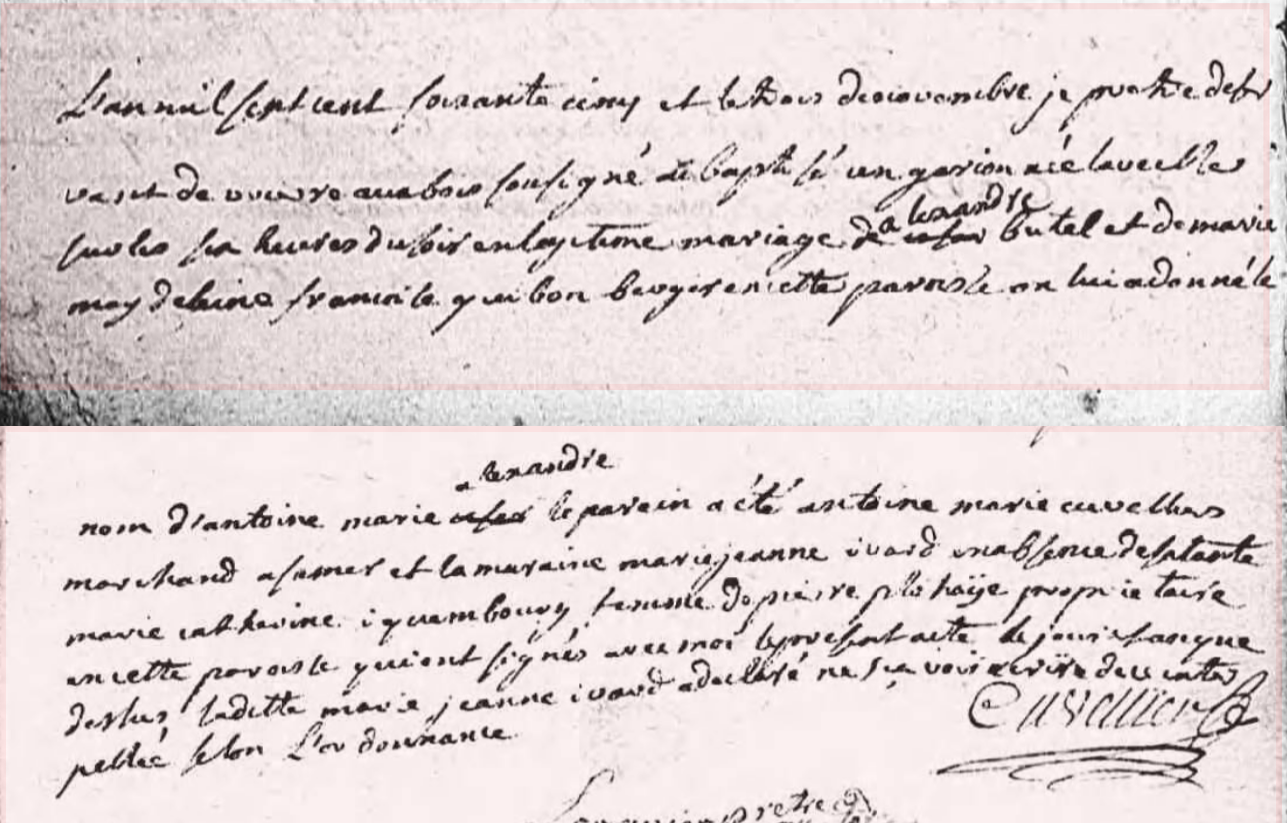 L'an mil sept cent soixante cinq et le trois de novembre je pretre desser
vant de vouvre aubois sousigné ai baptisé un garson né la veille
sur les six heures du soir en legitime mariage de alexandre butel et de marie
magdeleine francoise quibon berger en cette paroisse on lui a donné le
alexandre
nom d'antoine marie le parein a été antoine marie cuvelliers
marchand a samer et la maraine marie jeanne ivard en absence de sa tante
marie catherine iquembourg femme de pierre plohaÿe proprietaire
en cette paroisse qui ont signés avec moi le present acte le jour et an que
dessus ladite marie jeanne ivard a declaré ne sca voir ecrire de ce inter
pellée selon L'ordonnance
Cuvallier
pretre